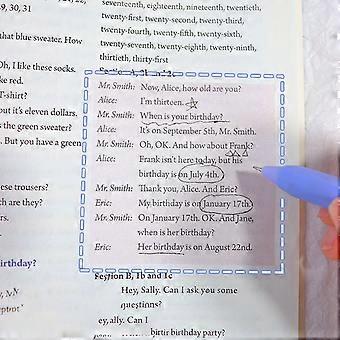 9, 30, 31
that blue sweater. How
Oh, I like these socks.
ke red.
T-shirt?
but it's eleven dollars.
s the green sweater?
But you have a green
these trousers?
ch are they?
irthday?
seventeenth, eighteenth, nineteenth, twentieth,
twenty-first, twenty-second, twenty-third,
twenty-fourth, twenty-fifth, twenty-sixth,
twenty-seventh, twenty-eighth, twenty-ninth,
thirtieth, thirty-first
Mr. Smith: Now, Alice, how old are you?
Alice: I'm thirteen.
Mr. Smith: When is your birthday?
Alice: It's on September 5th, Mr. Smith.
Mr. Smith: Oh, OK. And how about Frank?
Alice: Frank isn't here today, but his
birthday is on July 4th.
Mr. Smith: Thank you, Alice. And Eric?
Eric: My birthday is on January 17th.
Mr. Smith: On January 17th. OK. And Jane,
when is her birthday?
Eric: Her birthday is on August 22nd.
Section B, 1b and 1c
Hey, Sally. Can I ask you some
questions?
ey, ally. Can I
birthday party?